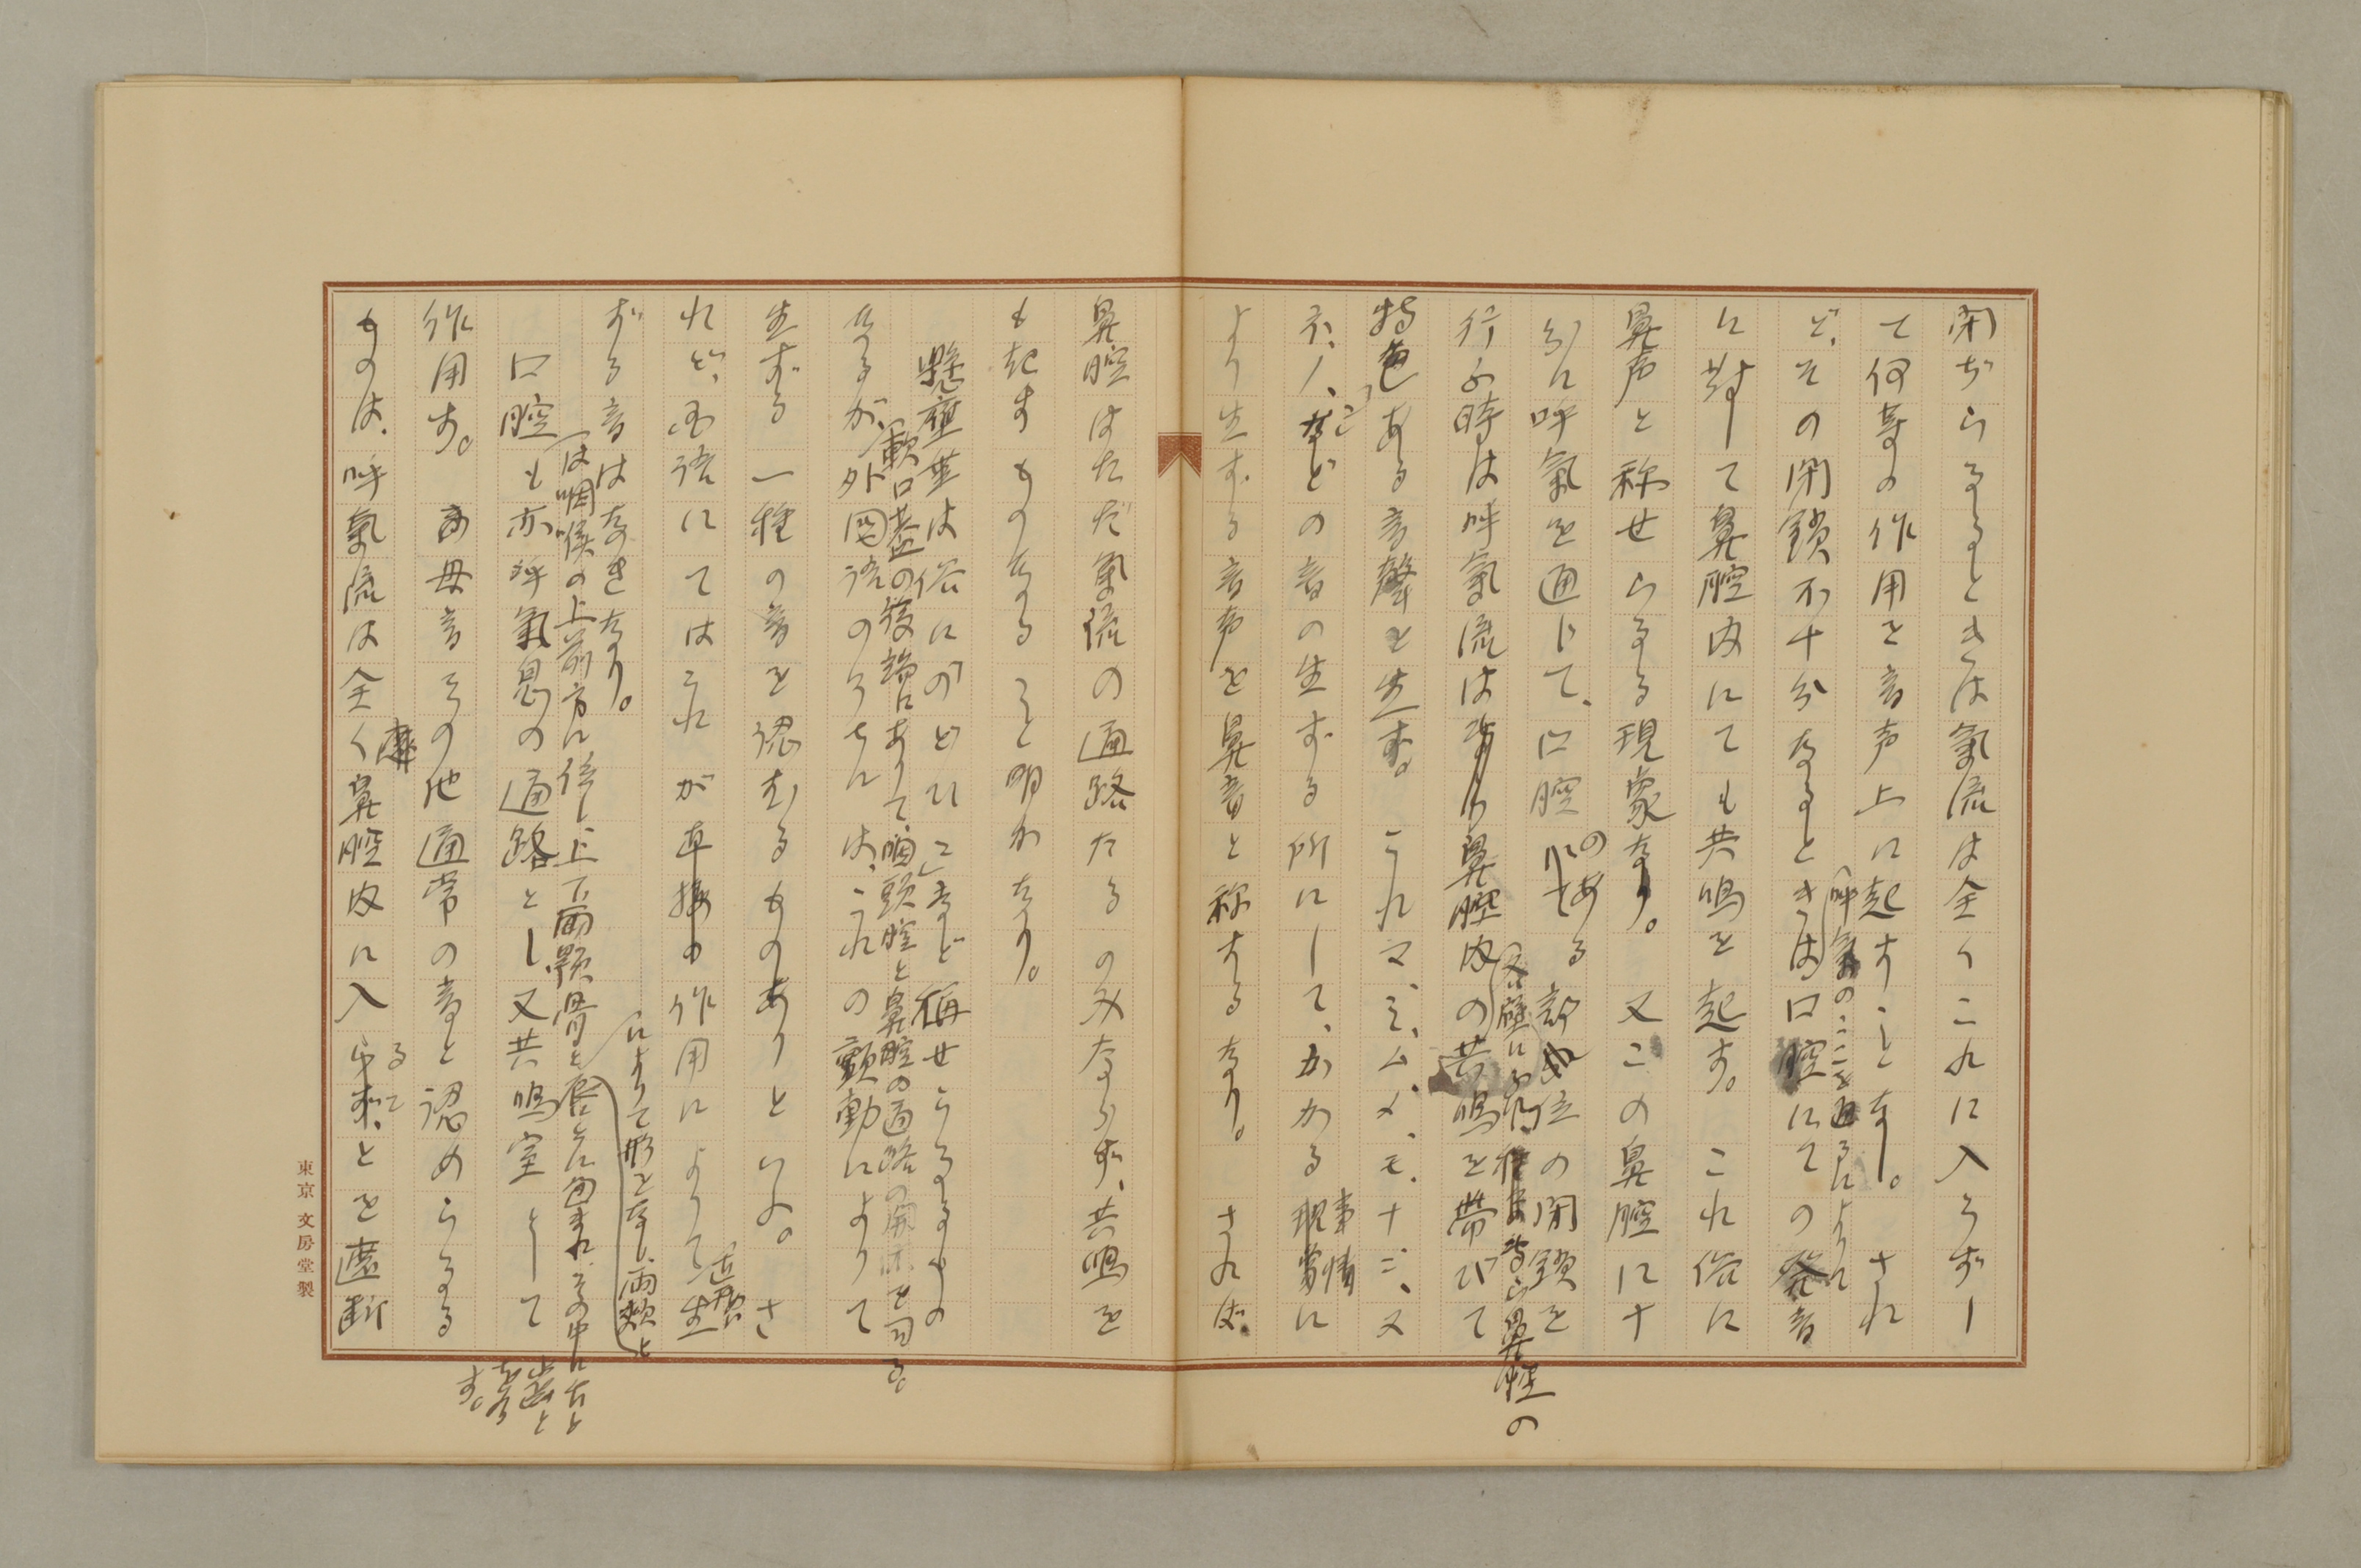 閉ぢらるるときは氣流は全くこれに入らずし
て何等の作用を音声上に起すことなし。され
ど、その閉鎖不十分なるときは口腔にての発音
呼氣のここを通るによりて
に対して鼻腔内にても共鳴を起す。これ俗に
鼻声と称せらるる現象なり。又この鼻腔に十
分に呼氣を通じて、口腔のある部位の閉鎖を
行ふ時は呼氣流は鼻腔内の共鳴を帯びて
鼻腔の
特色ある音聲を生ず。これマ、ミ、ム、メ、モ、ナ、ニ、ヌ
ネ、ノ、などの音の生ずる所にして、かかる事情に
より生ずる音声を鼻音と称するなり。されば、
鼻腔はただ氣流の通路たるのみならず、共鳴を
も起すものなること明かなり。
懸壅垂は俗に「のどひこ」など称せらるるもの
軟口蓋の後端にありて、咽頭腔と鼻腔の通路の開閉を司る。
なるが、外国語のうちには、これの顫動によりて
生ずる一種の音を認むるものありといふ。さ
れど、国語にてはこれが直接の作用によりて生
ずる音はなきなり。
によりて形をなし、両頬と
は咽喉の上前方に位し上下両顎骨と唇とに包まれ、その中に舌と
歯と
を蔵
す。
口腔も亦呼氣息の通路とし、又共鳴室として
作用す。母音その他通常の音と認めらるる
ものは、呼氣流は全く鼻腔内に入るを遮断
東京 文房堂製